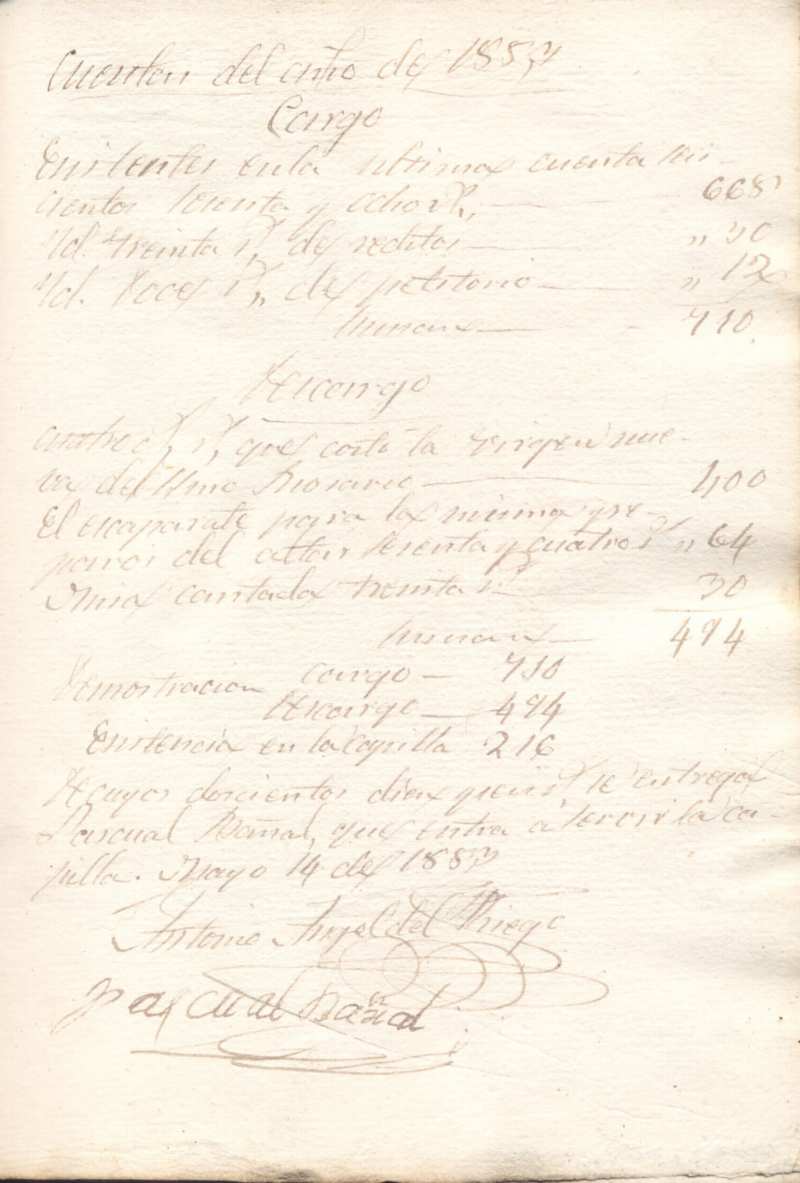 Cuentas del año de 1887
Cargo
Existentes en la ultima cuenta seis-
cientos sesenta y ocho rs,, — 668
Yd. treinta rs, de reditos — ,, 30
Yd. Doce rs,, de petitorio — ,, 12
Suman — 710.
Descargo
cuatroc.s rs, que costó la virgen nue-
va del Smo Rosario — 400
El escaparate para la misma y re-
paros del altar sesenta y cuatro rs ,, 64
Misa cantada treinta rs 30
Suman — 494
Demostracion cargo — 710
Descargo — 494
Existencia en la capilla 216
De cuyos doscientos diez y seis rs se entrega
Pascual Bañal, que entra á servir la ca-
pilla. Mayo 14 de 1887
Antonio Angel del Riego
Pascual Bañal